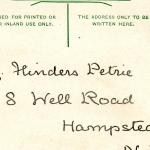 SED FOR PRINTED OR
R INLAND USE ONLY.
THE ADDRESS ONLY TO BE
WRITTEN HERE.
Hinders Petrie
8 Well Road
Hampstea